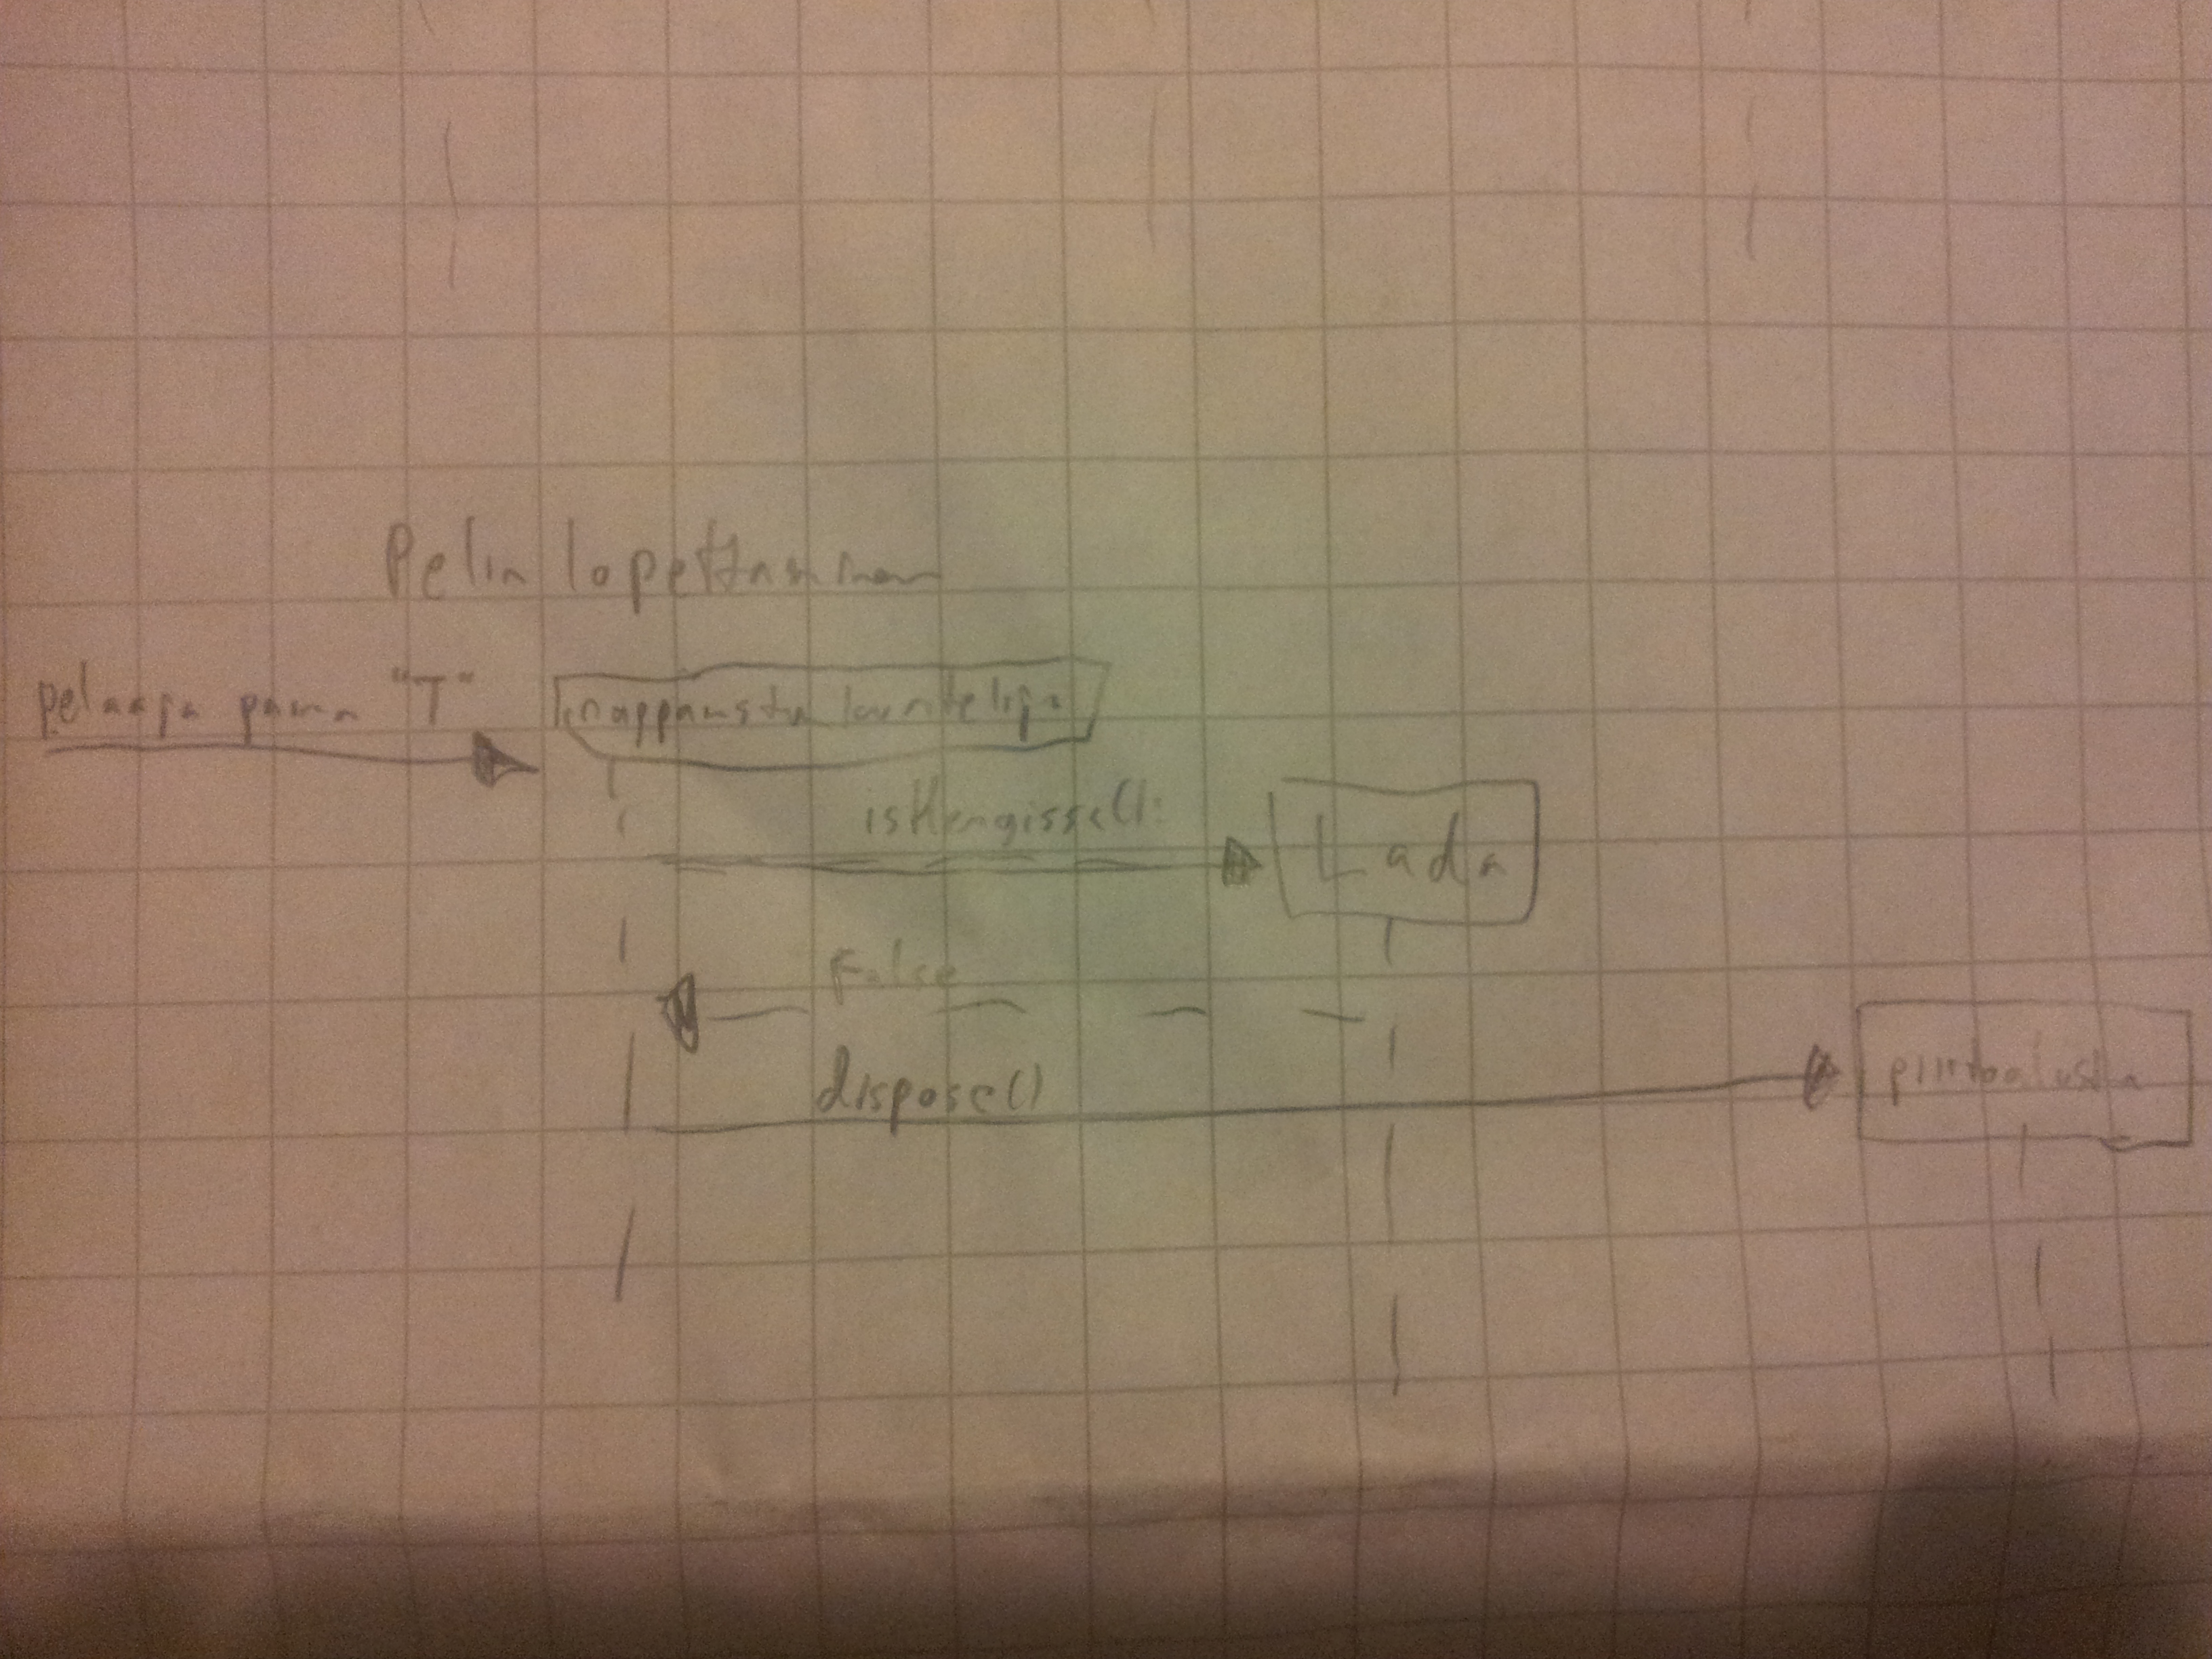 Pelin lopettaminen
pelaaja painaa "T"
knappaimistonkuuntelija
isHengissa():
Lada
False
dispose()
piirtoalusta